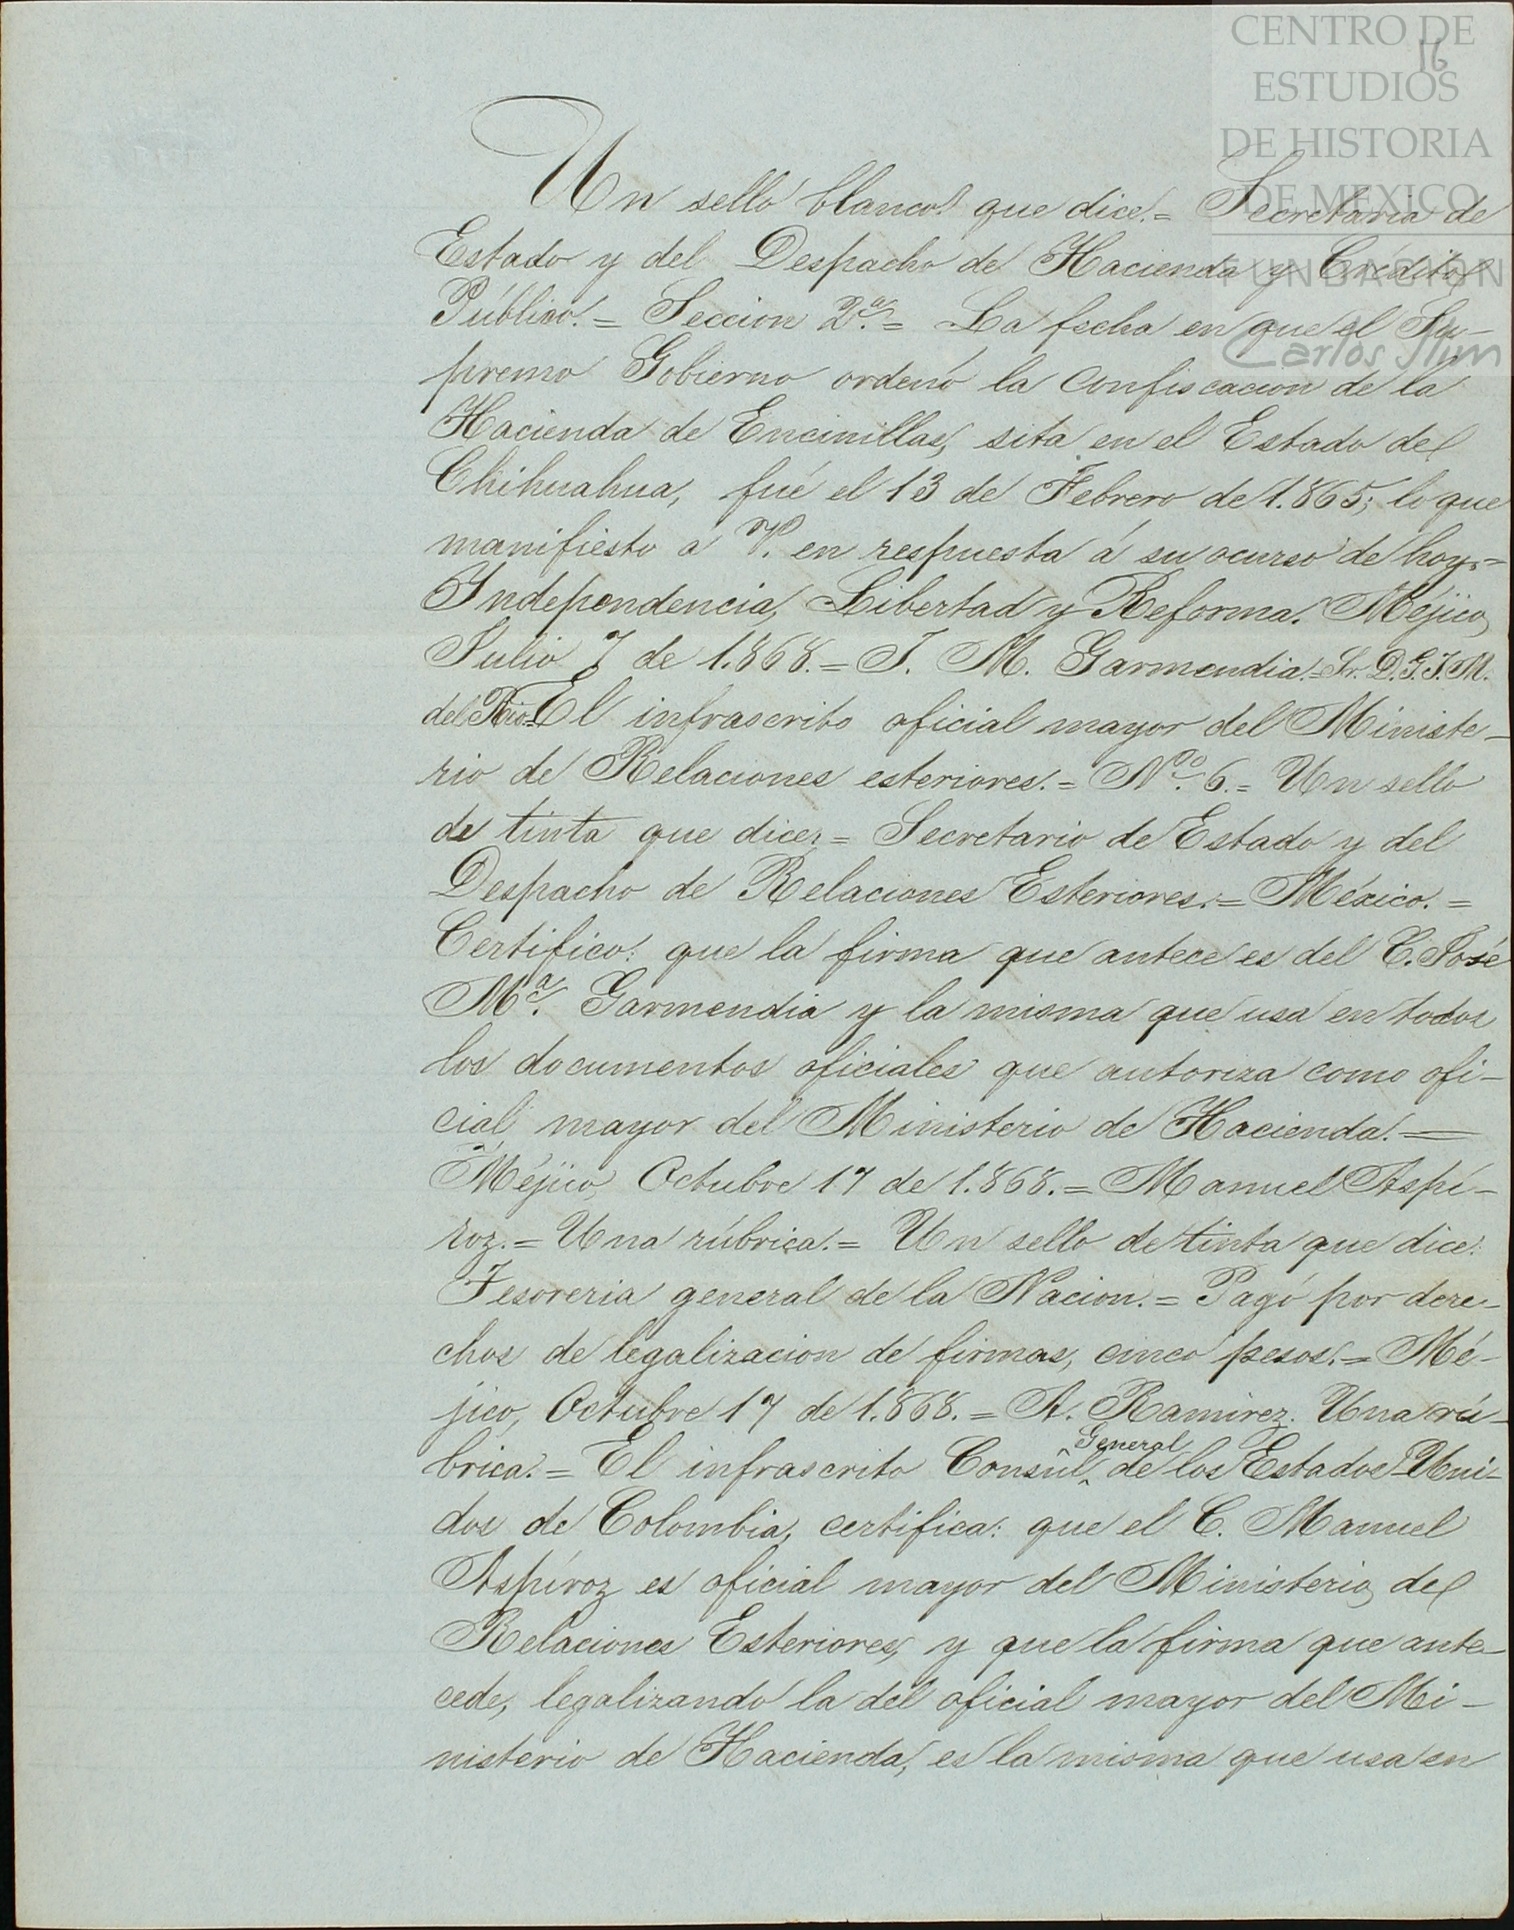 CENTRO DE
ESTUDIOS
DE HISTORIA
DE MEXICO
FUNDACIÓN
Carlos Slim
16
Un sello blanco que dice.= Secretaría de
Estado y del Despacho de Hacienda y Crédito
Público.= Seccion 2ª.= La fecha en que el Su-
premo Gobierno ordenó la confiscacion de la
Hacienda de Encinillas, sita en el Estado de
Chihuahua, fué el 13 de Febrero de 1.865; lo que
manifiesto á V. en respuesta á su ocurso de hoy.=
Independencia, Libertad y Reforma. Méjico,
Julio 7 de 1.868.= J. M. Garmendia.= Sr. D. G. J. M.
del Rio.= El infrascrito oficial mayor del Ministe-
rio de Relaciones esteriores.= Nº. 6.= Un sello
de tinta que dice:= Secretario de Estado y del
Despacho de Relaciones Esteriores.= México.=
Certifico: que la firma que antece es del C. José
Mª. Garmendia y la misma que usa en todos
los documentos oficiales que autoriza como ofi-
cial mayor del Ministerio de Hacienda.=
Méjico, Octubre 17 de 1.868.= Manuel Aspí-
roz.= Una rúbrica.= Un sello de tinta que dice:
Tesoreria general de la Nacion.= Pagó por dere-
chos de legalizacion de firmas, cinco pesos.= Mé-
jico, Octubre 17 de 1.868.= A. Ramirez. Una rú-
brica.= El infrascrito Consul General de los Estados Uni-
dos de Colombia, certifica: que el C. Manuel
Aspíroz es oficial mayor del Ministerio de
Relaciones Esteriores, y que la firma que ante-
cede, legalizando la del oficial mayor del Mi-
nisterio de Hacienda, es la misma que usa en